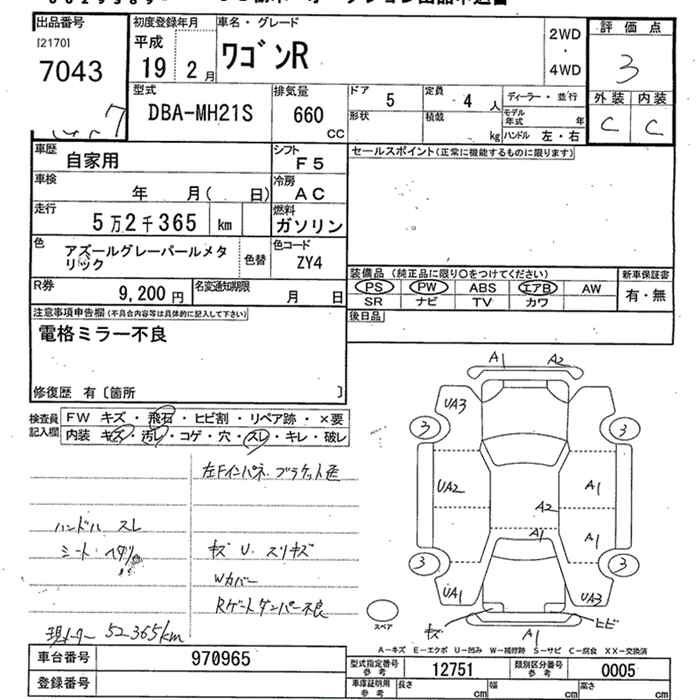 出品番号
[2170]
7043
初度登録年月
平成
19 2月
車名・グレード
ワゴンR
2WD
・
4WD
評価点
3
外装 内装
C C
型式
DBA-MH21S
排気量
660
CC
ドア 5
定員 4 人
ディーラー・並行
形状
積載 kg
モデル年式 年
ハンドル 左・右
車歴
自家用
シフト
F5
セールスポイント(正常に機能するものに限ります)
車検
年 月( 日)
冷房
AC
走行
5万2千365 km
燃料
ガソリン
色
アズールグレーパールメタリック
色替
色コード
ZY4
R券
9,200円
名変通知期限
月 日
装備品(純正品に限り○をつけてください)
PS PW ABS エアB AW
SR ナビ TV カワ
新車保証書
有・無
後日品
注意事項申告欄(不具合内容等は具体的に記入して下さい)
電格ミラー不良
修復歴 有〔箇所 〕
検査員記入欄
FW キズ・飛石・ヒビ割・リペア跡・×要
内装 キズ・汚レ・コゲ・穴・スレ・キレ・破レ
ハンドル スレ
シート・ヘタリ
現メーター 52365km
左Fインパネ ブラケット色
キズ U スリキズ
Wカバー
Rゲートダンパー不良
A1 A2
UA3
3 3
UA2 A1
A2
A1 A1
3 3
UA1 UA3
キズ A1 ヒビ
スペア
A-キズ E-エクボ U-凹み W-補修跡 S-サビ C-腐食 XX-交換済
車台番号
970965
登録番号
型式指定番号 参考
12751
類別区分番号 参考
0005
車庫証明用 参考
長さ cm
幅 cm
高さ cm